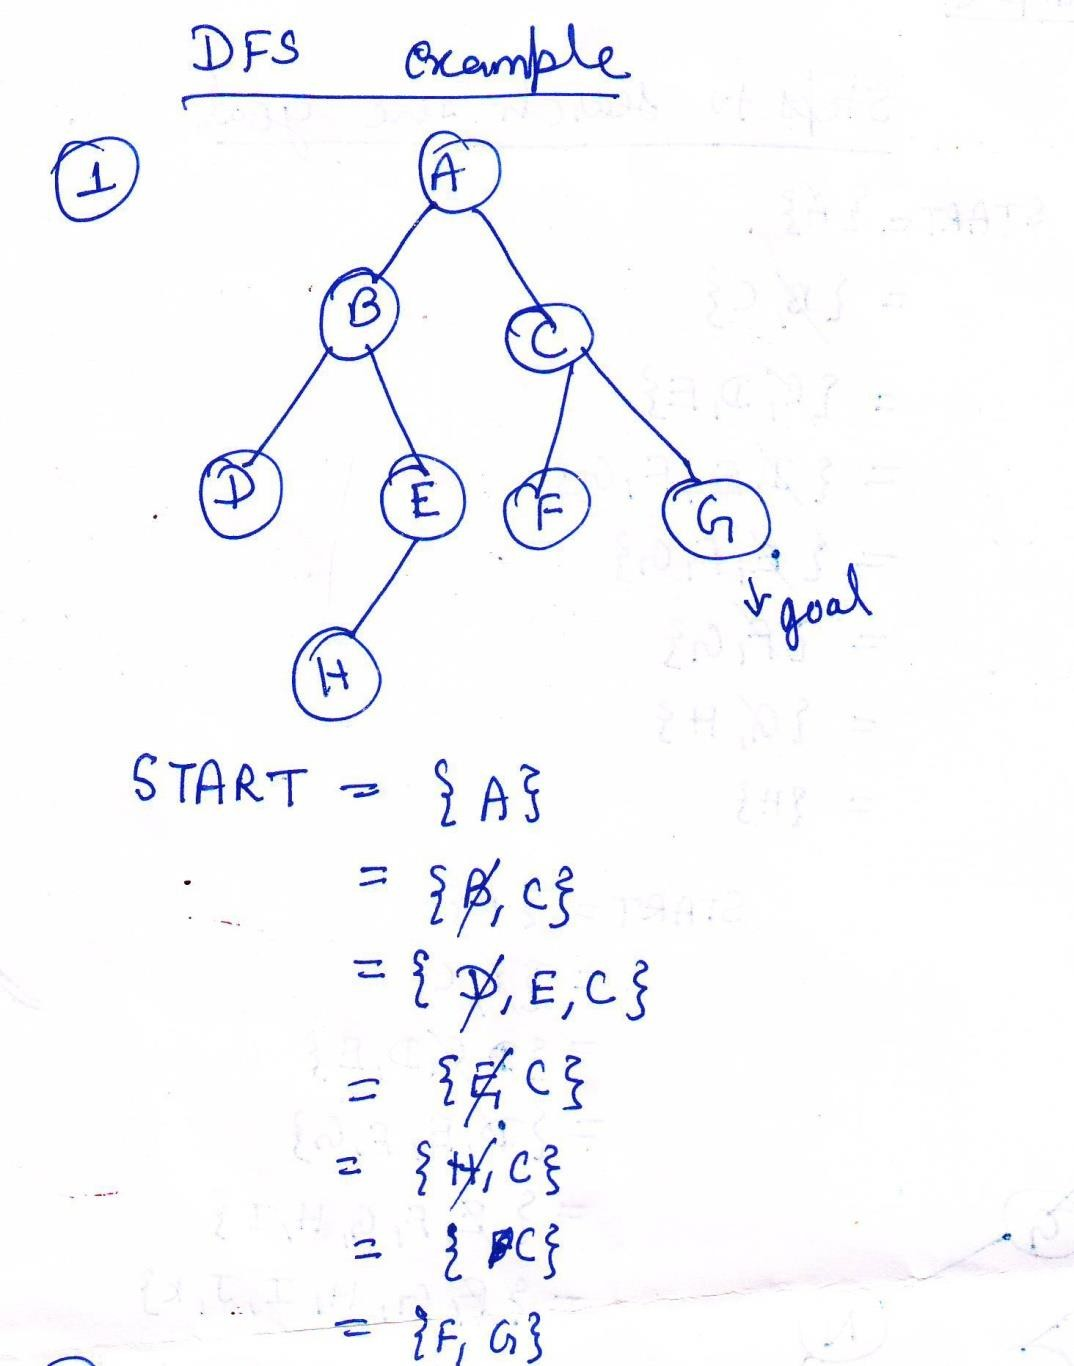 DFS example
1
A
B
C
D E F G
↓ goal
H
START = {A}
= {B, C}
= {D, E, C}
= {E, C}
= {H, C}
= { C}
= {F, G}